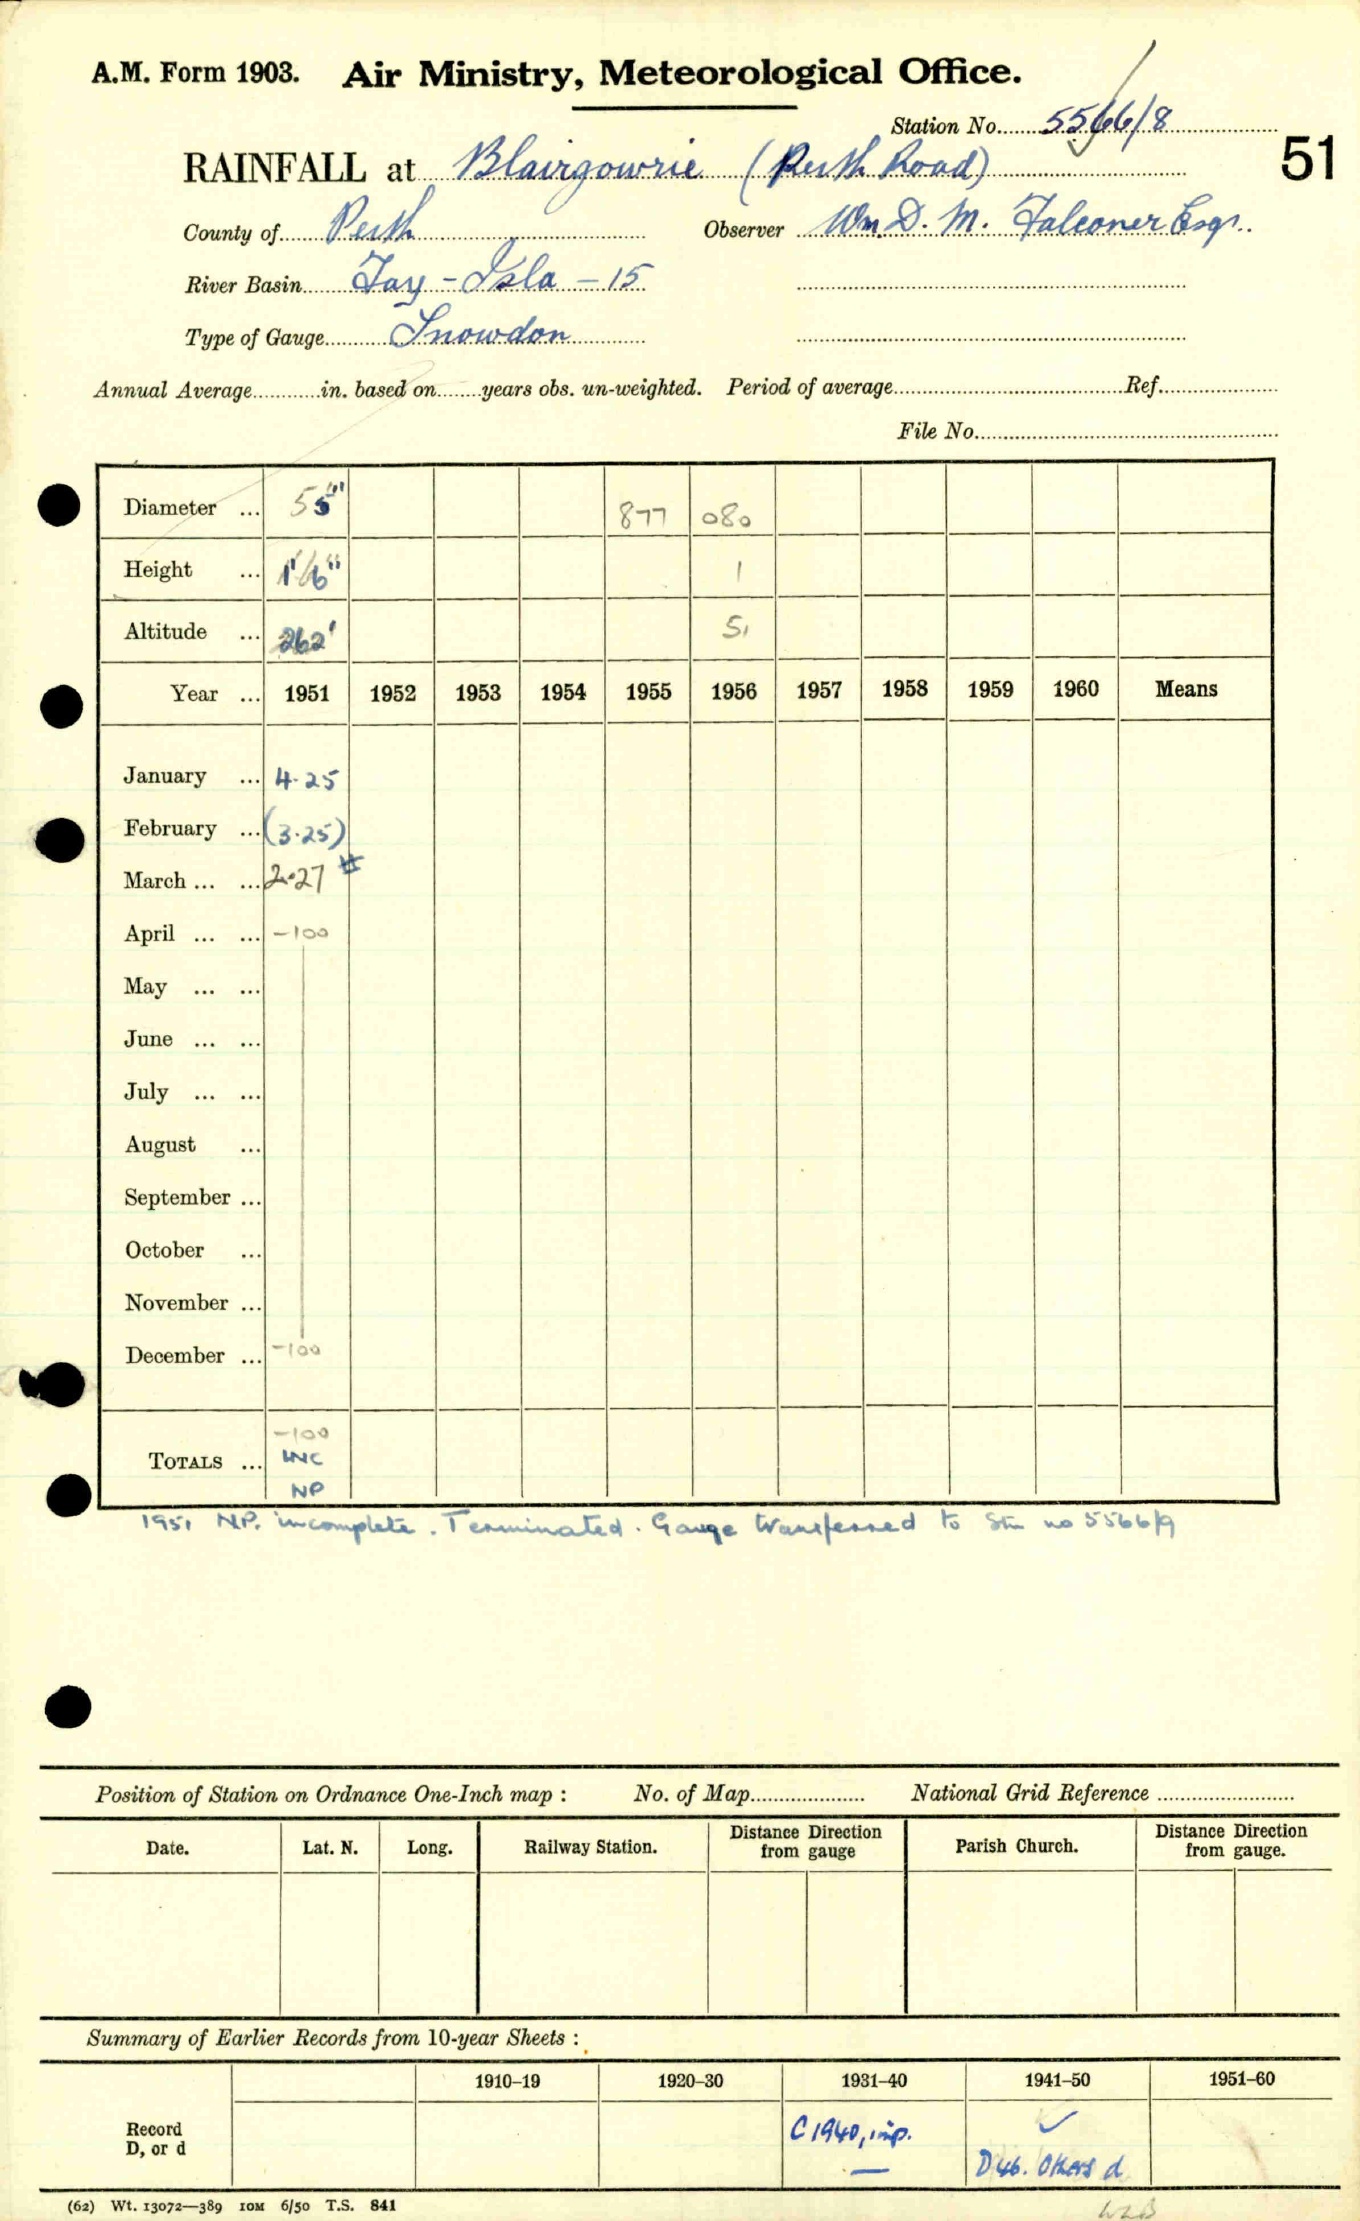 A.M. Form 1903. Air Ministry, Meteorological Office.
Station No. 5566/8
51
RAINFALL at Blairgowrie (Perth Road)
County of Perth Observer Wm. D. M. Falconer Esqr.
River Basin Tay - Isla - 15
Type of Gauge Snowdon
Annual Average in. based on years obs. un-weighted. Period of average Ref.
File No.
Diameter ... 5" 877 080
Height ... 1'/6" 1
Altitude ... 262' 51
Year ... 1951 1952 1953 1954 1955 1956 1957 1958 1959 1960 Means
January ... 4.25
February ... (3.25)
March ... ... 2.27 #
April ... ... -100
May ... ...
June ... ...
July ... ...
August ...
September ...
October ...
November ...
December ... -100
-100
TOTALS ... INC
NP
1951 N.P. incomplete. Terminated. Gauge transferred to Stn no 5566/9
Position of Station on Ordnance One-Inch map : No. of Map National Grid Reference
Date. Lat. N. Long. Railway Station. Distance from gauge Direction Parish Church. Distance from gauge. Direction
Summary of Earlier Records from 10-year Sheets :
1910–19 1920–30 1931–40 1941–50 1951–60
Record C1940, inp. ✓
D, or d — D46. Others d
(62) Wt. 13072—389 10M 6/50 T.S. 841